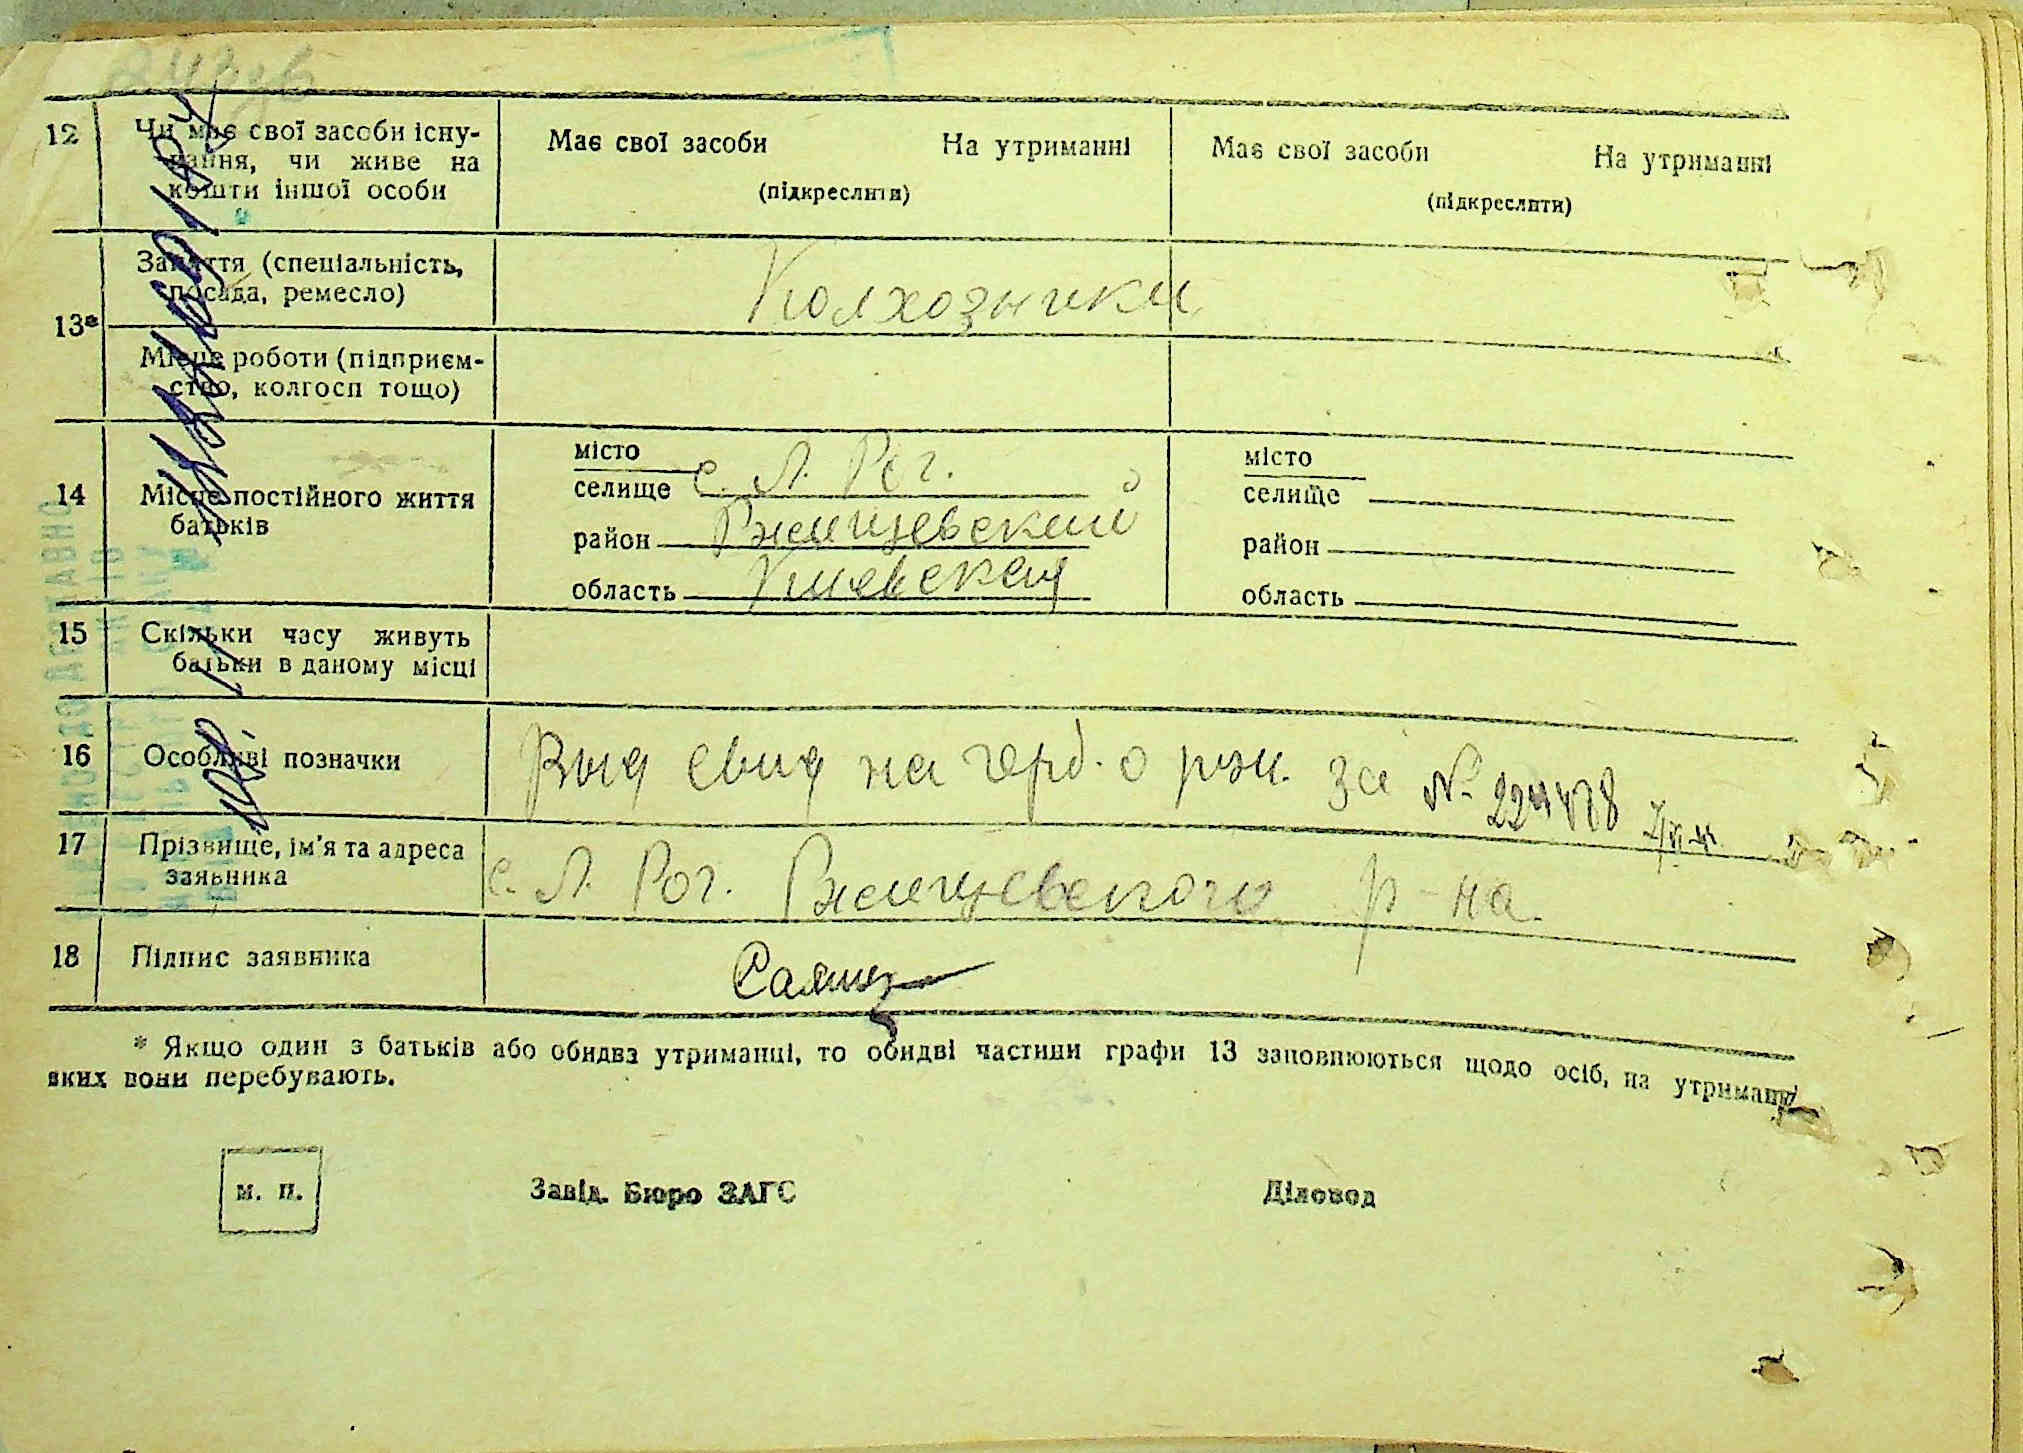 12
Чи має свої засоби існу-
вання, чи живе на
кошти іншої особи
Має свої засоби На утриманні
(підкреслити)
Має свої засоби На утриманні
(підкреслити)
13*
Заняття (спеціальність,
посада, ремесло)
Колхозники
Місце роботи (підприєм-
ство, колгосп тощо)
14
Місце постійного життя
батьків
місто
селище с. Л. Рог.
район Ржищевский
область Киевская
місто
селище
район
область
15
Скільки часу живуть
батьки в даному місці
16
Особливі позначки
Выд свид на герб. о рож. за №
17
Прізвище, ім'я та адреса
заявника
с. Л. Рог. Ржищевского р-на.
18
Підпис заявника
* Якщо один з батьків або обидва утриманці, то обидві частини графи 13 заповнюються щодо осіб, на утриманні
яких вони перебувають.
м. п.
Завід. Бюро ЗАГС Діловод